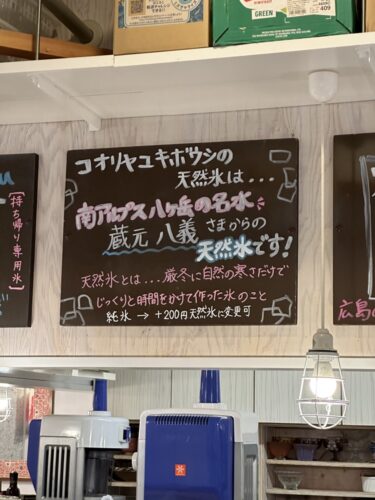 GREEN
コオリヤユキボウシの
天然氷は...
南アルプス八ヶ岳の名水
蔵元 八義 さまからの
天然氷です!
天然氷とは...厳冬に自然の寒さだけで
じっくりと時間をかけて作った氷のこと
純氷 → +200円天然氷に変更可
[持ち帰り専用氷]
広島